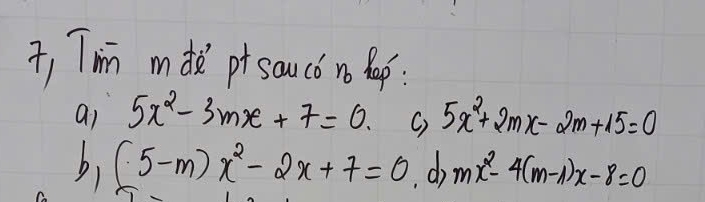 7, Tìm m để pt sau có n₀ kép:
a) 5x² - 3mx + 7 = 0. c) 5x² + 2mx - 2m + 15 = 0
b, (5 - m) x² - 2x + 7 = 0. d) mx² - 4(m - 1)x - 8 = 0